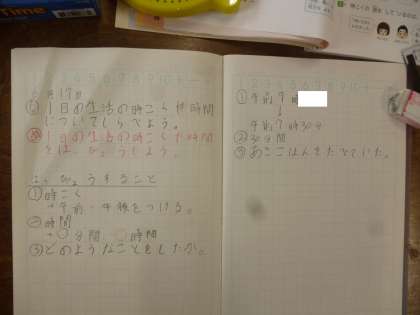 1 2 3 4 5 6 7 8 9 10
月17日
1日の生活の時こくや時間
についてしらべよう。
1日の生活の時こくや時間
とはっぴょうしよう。
はっぴょうすること
①時こく
→午前・午後をつける。
②時間
→○分間 ○時間
③どのようなことをしたか。
①午前7時
↓
午前7時30分
②30分間
③あさごはんをたべていた。
Time